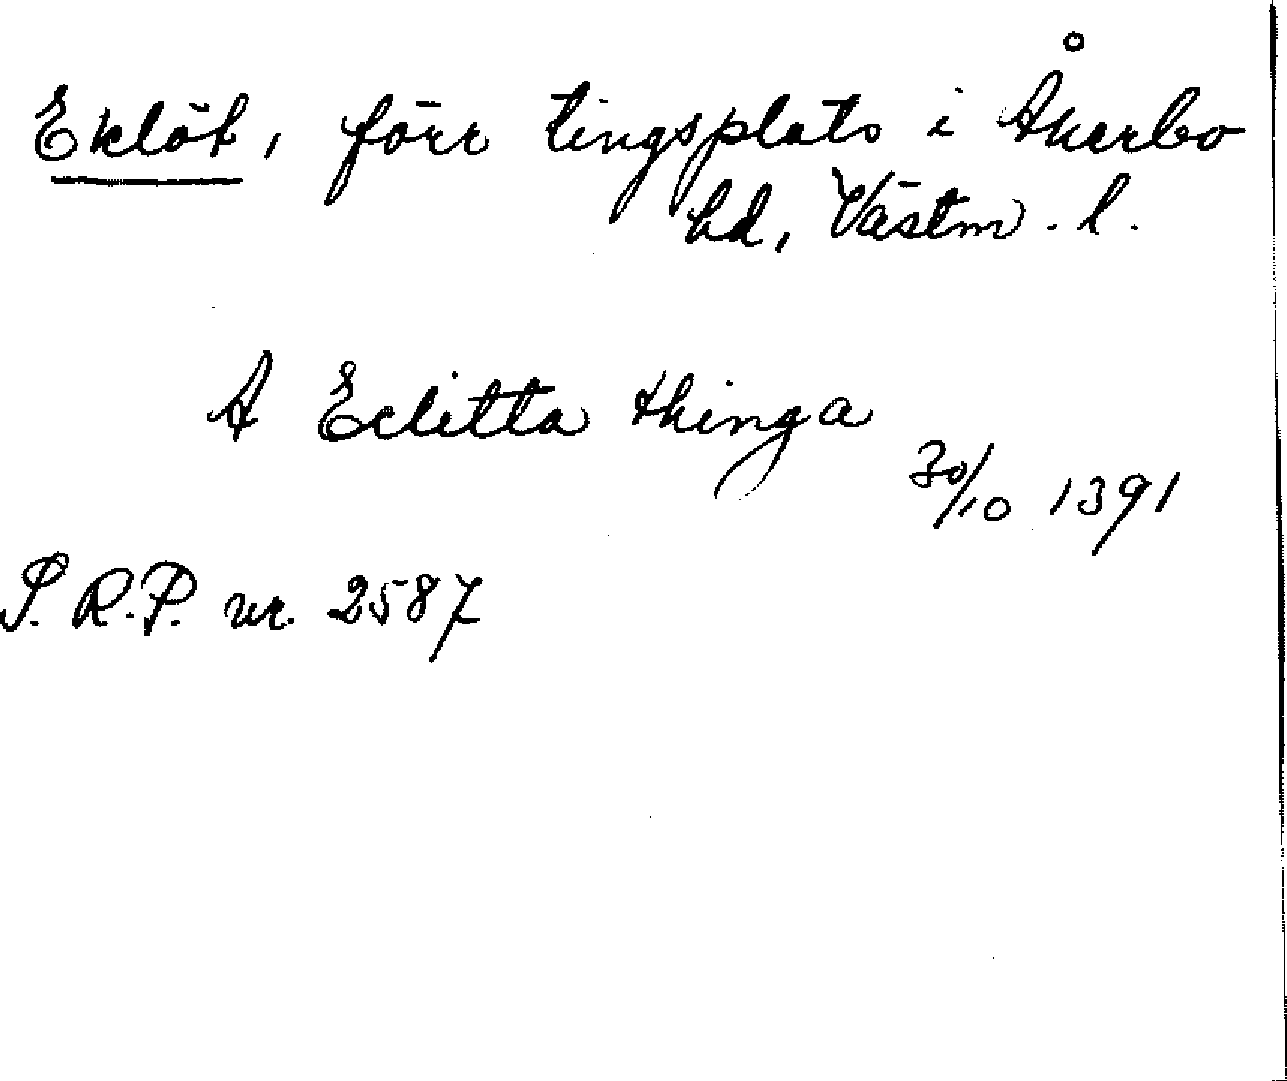 Eklöt, förr tingsplats i Åkerbo
hd, Västm. l.
A Eclitta thinga
30/10 1391
S. R. P. nr. 2587